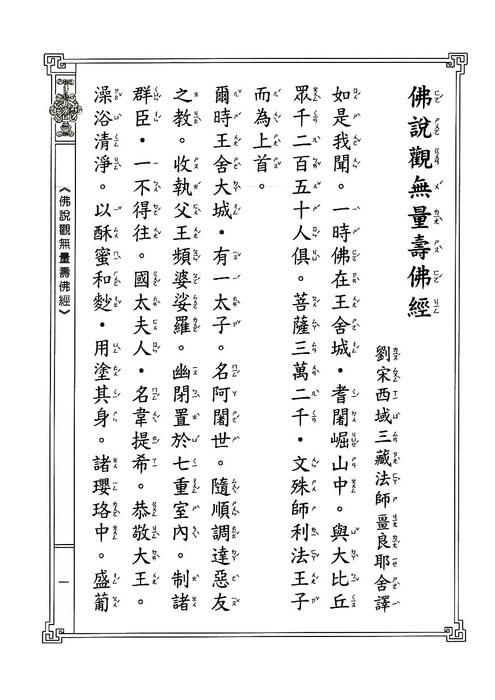 佛說觀無量壽佛經
劉宋西域三藏法師畺良耶舍譯
如是我聞。一時佛在王舍城・耆闍崛山中。與大比丘
眾千二百五十人俱。菩薩三萬二千・文殊師利法王子
而為上首。
爾時王舍大城・有一太子。名阿闍世。隨順調達惡友
之教。收執父王頻婆娑羅。幽閉置於七重室內。制諸
群臣・一不得往。國太夫人・名韋提希。恭敬大王。
澡浴清淨。以酥蜜和麨・用塗其身。諸瓔珞中。盛葡
《佛說觀無量壽佛經》
一